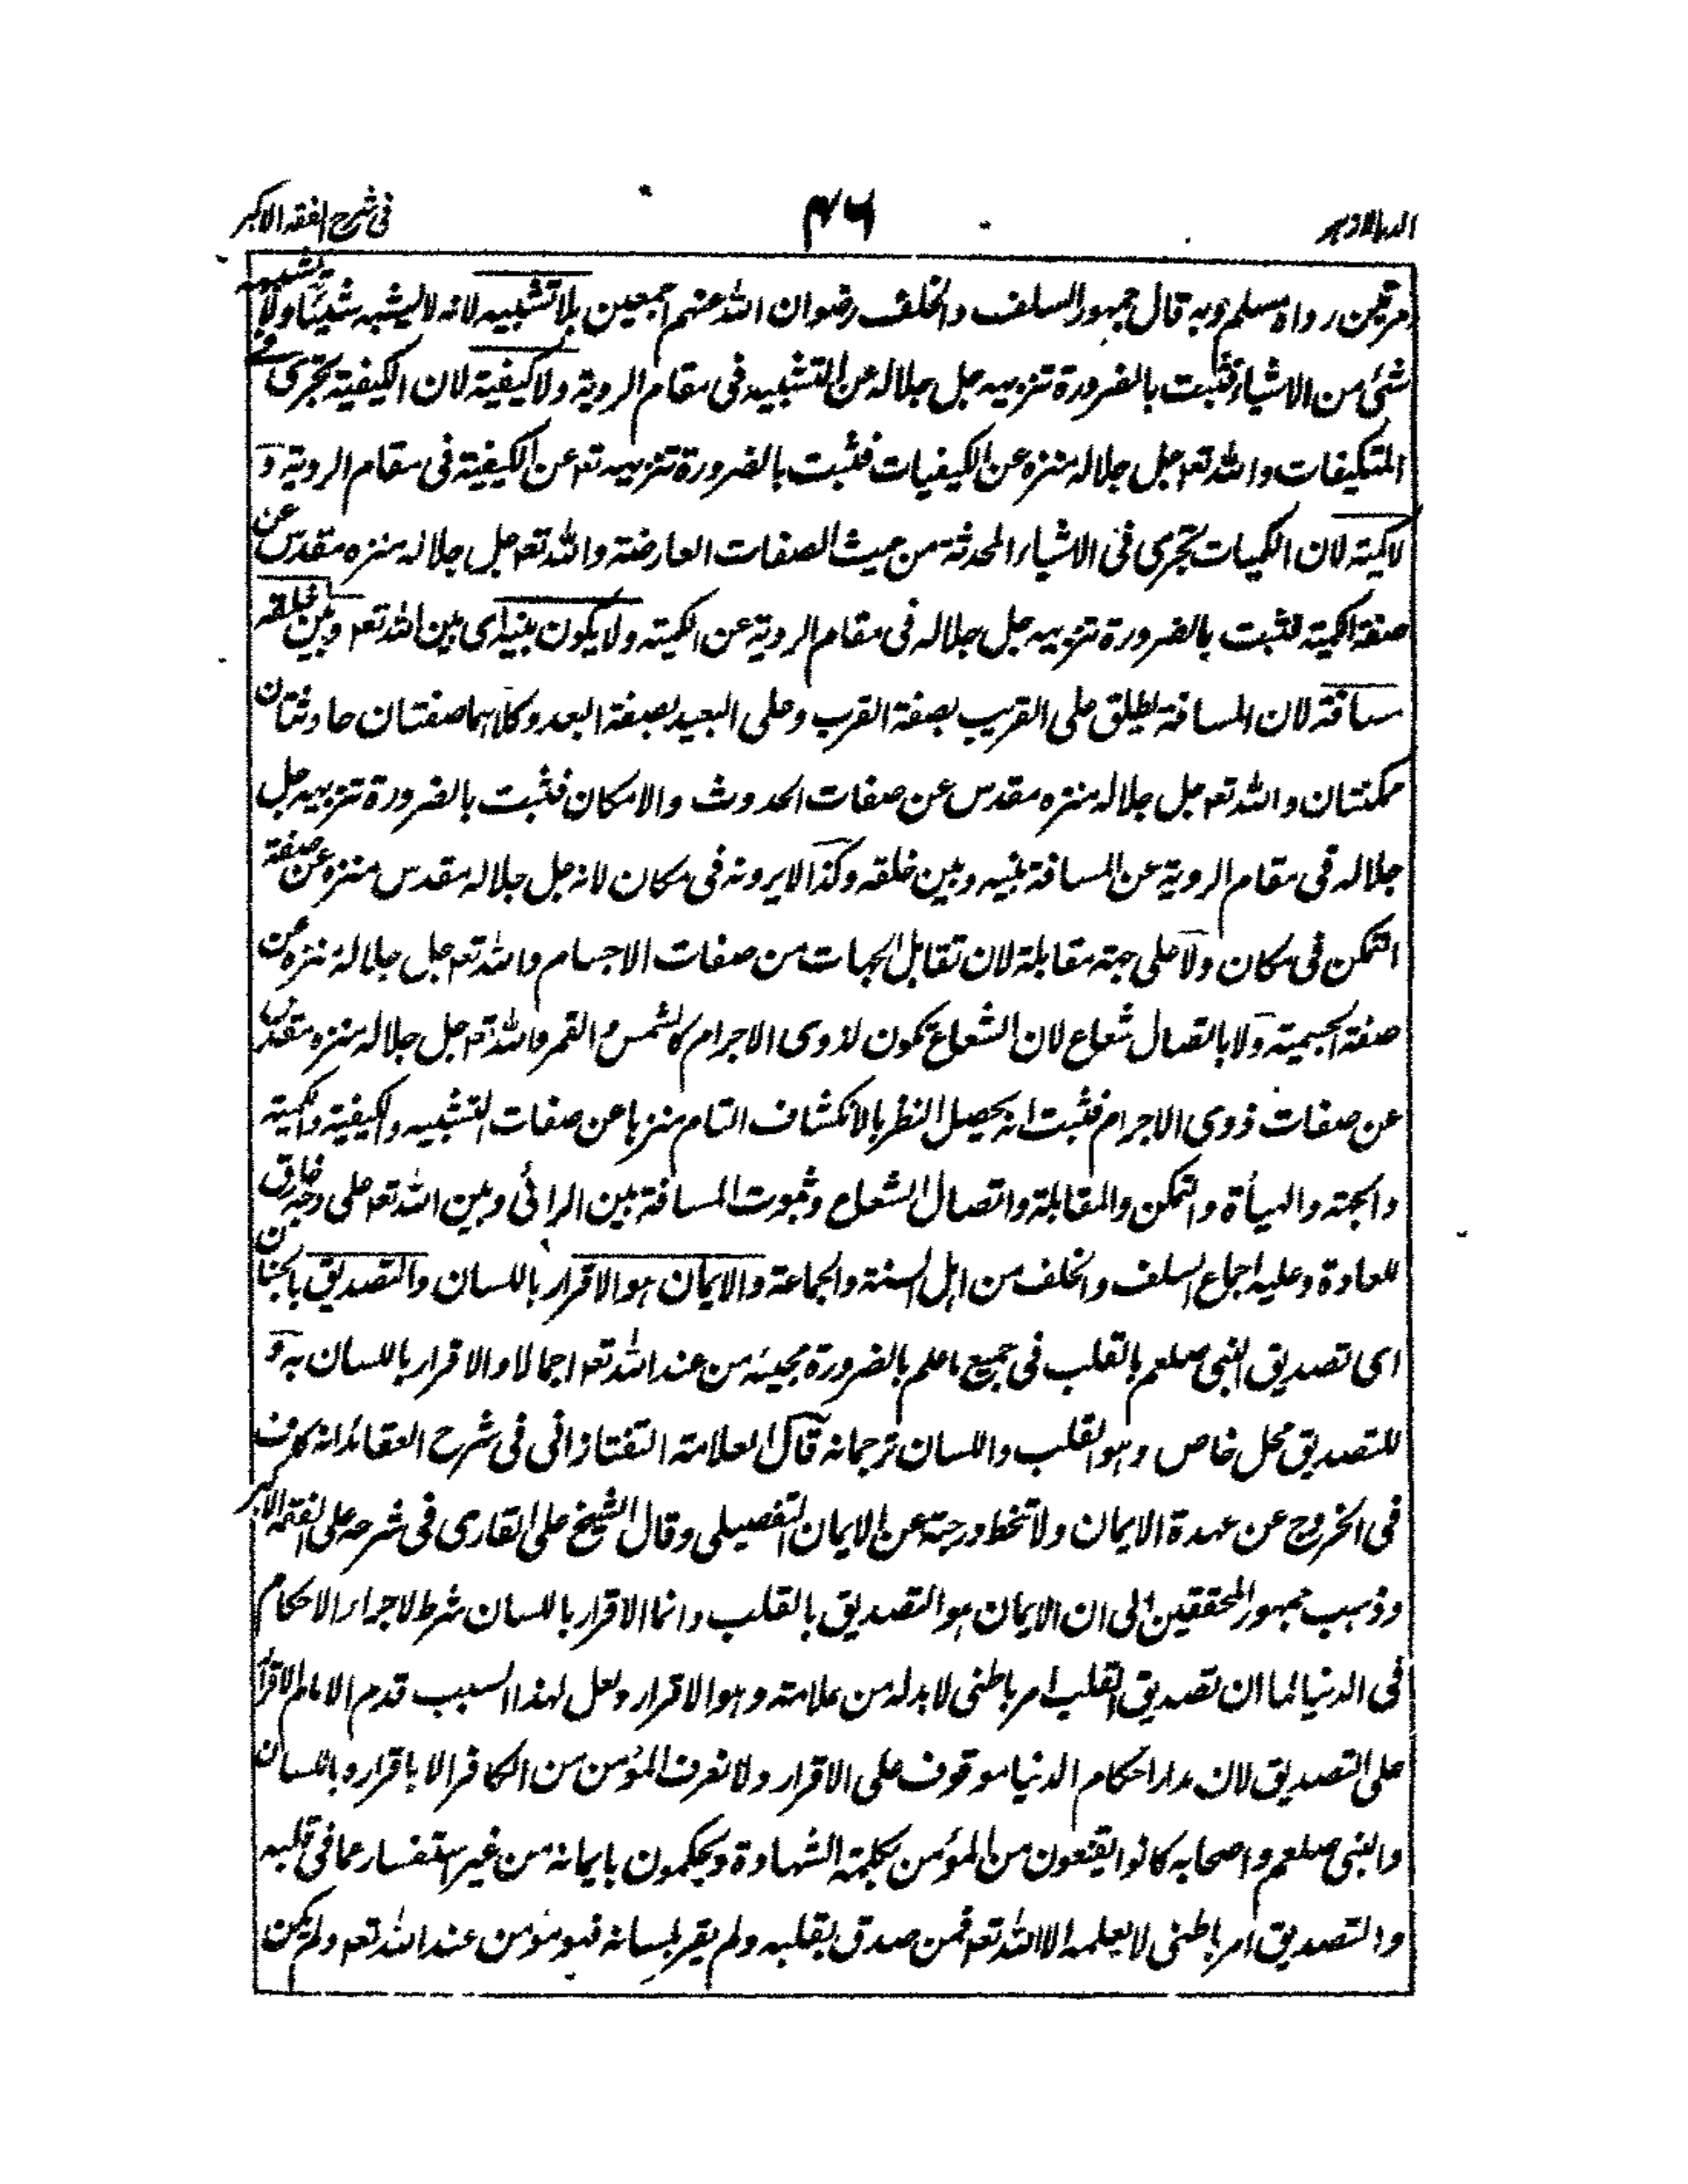 الدر الازہر ٤٦ فی شرح الفقه الاکبر
مرتین رواه مسلم وبه قال جمهور السلف والخلف رضوان الله عنهم اجمعین بلا تشبیه لانه لا یشبه شیئا ولا یشبهه
شئ من الاشیاء فثبت بالضرورة تنزیهه جل جلاله عن التشبیه فی مقام الرویة ولا کیفیة لان الکیفیة تجری فی
المتکیفات والله تعہ جل جلاله منزه عن الکیفیات فثبت بالضرورة تنزیهه تعہ عن الکیفیة فی مقام الرویة و
لا کمیة لان الکمیات تجری فی الاشیاء المحدثة من حیث الصفات العارضة والله تعہ جل جلاله منزه مقدس عن
صفة الکمیة فثبت بالضرورة تنزیهه جل جلاله فی مقام الرویة عن الکمیة ولا یکون بینه ای بین الله تعہ وبین خلقه
مسافة لان المسافة یطلق علی القریب بصفة القرب وعلی البعید بصفة البعد وکلاهما صفتان حادثتان
ممکنتان والله تعہ جل جلاله منزه مقدس عن صفات الحدوث والامکان فثبت بالضرورة تنزیهه جل
جلاله فی مقام الرویة عن المسافة بینه وبین خلقه وکذا لا یرونه فی مکان لانه جل جلاله مقدس منزه عن صفة
التمکن فی مکان ولا علی جهة مقابلة لان تقابل الجهات من صفات الاجسام والله تعہ جل جلاله منزه عن
صفة الجسمیة ولا باتصال شعاع لان الشعاع تکون لذوی الاجرام کالشمس والقمر والله تعہ جل جلاله منزه مقدس
عن صفات ذوی الاجرام فثبت انه یحصل النظر بالانکشاف التام منزها عن صفات التشبیه والکیفیة والکمیة
والجهة والهیأة والتمکن والمقابلة واتصال الشعاع وثبوت المسافة بین الرائی وبین الله تعہ علی وجه خارق
للعادة وعلیه اجماع السلف والخلف من اهل السنة والجماعة والایمان هو الاقرار باللسان والتصدیق بالجنان
ای تصدیق النبی صلعم بالقلب فی جمیع ما علم بالضرورة مجیئه من عند الله تعہ اجمالا والاقرار باللسان به و
للتصدیق محل خاص وهو القلب واللسان ترجمانه قال العلامة التفتازانی فی شرح العقائد انه کاف
فی الخروج عن عهدة الایمان ولا تنحط درجته عن الایمان التفصیلی وقال الشیخ علی القاری فی شرحه علی الفقه الاکبر
وذهب جمهور المحققین الی ان الایمان هو التصدیق بالقلب وانما الاقرار باللسان شرط لاجراء الاحکام
فی الدنیا لما ان تصدیق القلب امر باطنی لا بد له من علامة وهو الاقرار ولعل لهذا السبب قدم الامام الاقرار
علی التصدیق لان مدار احکام الدنیا موقوف علی الاقرار ولا نعرف المؤمن من الکافر الا باقراره باللسان
والنبی صلعم واصحابه کانوا یقنعون من المؤمن بکلمة الشهادة ویحکمون بایمانه من غیر استفسار عما فی قلبه
والتصدیق امر باطنی لا یعلمه الا الله تعہ فمن صدق بقلبه ولم یقر بلسانه فهو مؤمن عند الله تعہ ولم یکن